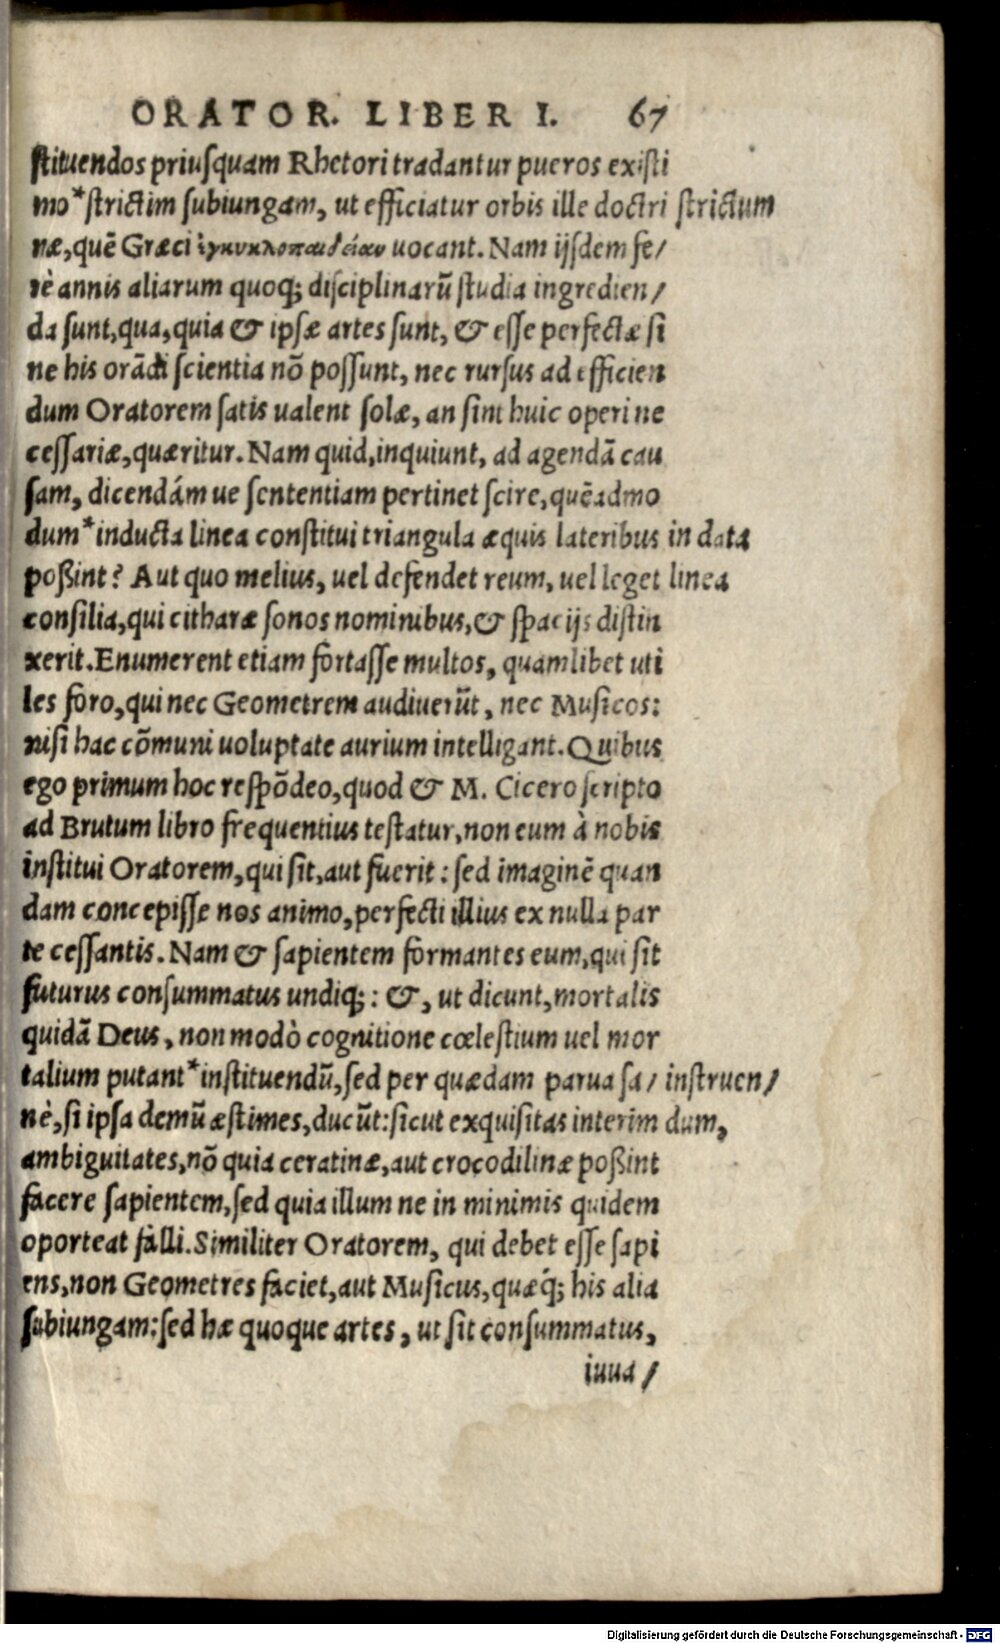 ORATOR. LIBER I. 67
stituendos priusquam Rhetori tradantur pueros existi
mo*strictim subiungam, ut efficiatur orbis ille doctri strictum
næ,quē Græci ἐγκυκλοπαιδείαν uocant. Nam ijsdem fe/
rè annis aliarum quoq; disciplinarū studia ingredien/
da sunt,qua,quia & ipsæ artes sunt, & esse perfectæ si
ne his orādi scientia nō possunt, nec rursus ad efficien
dum Oratorem satis ualent solæ, an sint huic operi ne
cessariæ,quæritur. Nam quid,inquiunt, ad agendā cau
sam, dicendám ue sententiam pertinet scire,quēadmo
dum*inducta linea constitui triangula æquis lateribus in data
poßint? Aut quo melius, uel defendet reum, uel leget linea
consilia,qui citharæ sonos nominibus,& spacijs distin
xerit.Enumerent etiam fortasse multos, quamlibet uti
les foro,qui nec Geometrem audiuerūt, nec Musicos:
nisi hac cōmuni uoluptate aurium intelligant. Quibus
ego primum hoc respōdeo,quod & M. Cicero scripto
ad Brutum libro frequentius testatur,non eum à nobis
institui Oratorem,qui sit,aut fuerit: sed imaginē quan
dam concepisse nos animo,perfecti illius ex nulla par
te cessantis. Nam & sapientem formantes eum,qui sit
futurus consummatus undiq;: &, ut dicunt,mortalis
quidā Deus, non modò cognitione cœlestium uel mor
talium putant*instituendū,sed per quædam parua sa/ instruen/
nè,si ipsa demū æstimes,ducūt:sicut exquisitas interim dum,
ambiguitates,nō quia ceratinæ,aut crocodilinæ poßint
facere sapientem,sed quia illum ne in minimis quidem
oporteat falli.Similiter Oratorem, qui debet esse sapi
ens,non Geometres faciet,aut Musicus,quæq́; his alia
subiungam:sed hæ quoque artes, ut sit consummatus,
iuua/
Digitalisierung gefördert durch die Deutsche Forschungsgemeinschaft - DFG